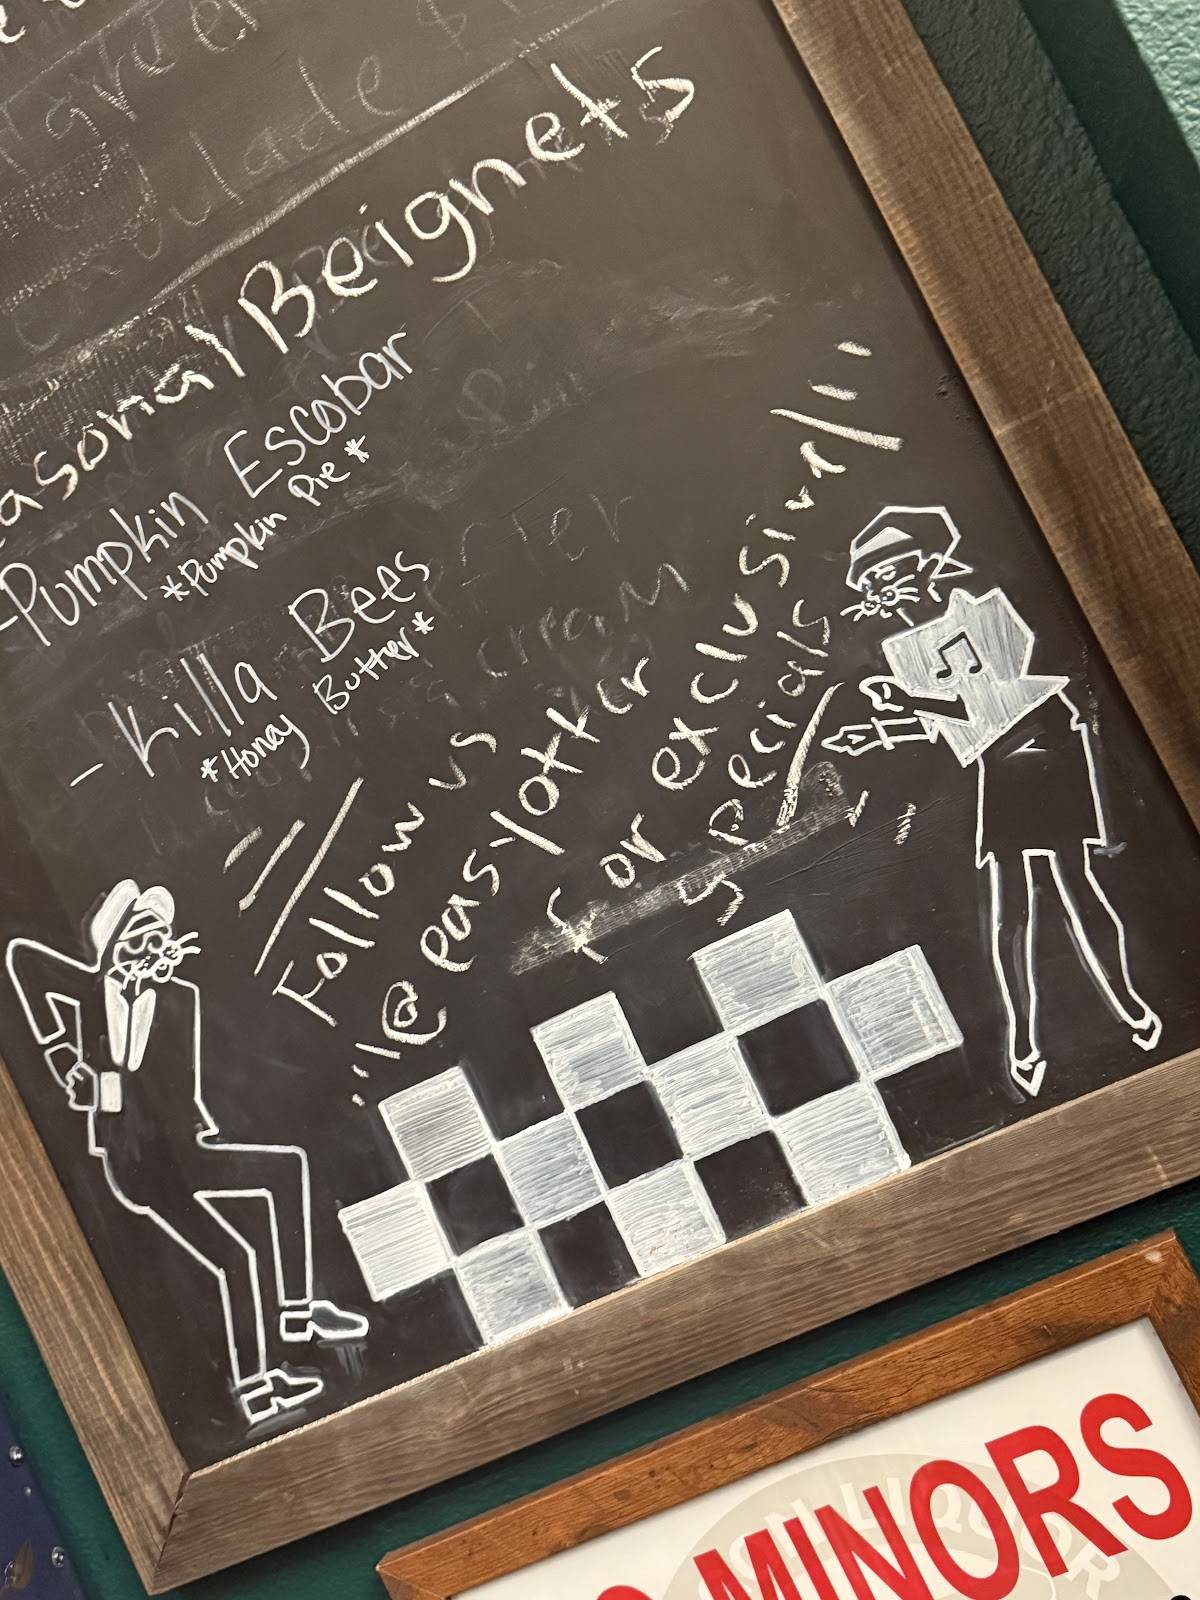 Seasonal Beignets
-Pumpkin Escobar
*Pumpkin Pie*
- Killa Bees
*Honey Butter*
Follow us
@easyotter
for exclusive
specials
MINORS
LIQUOR